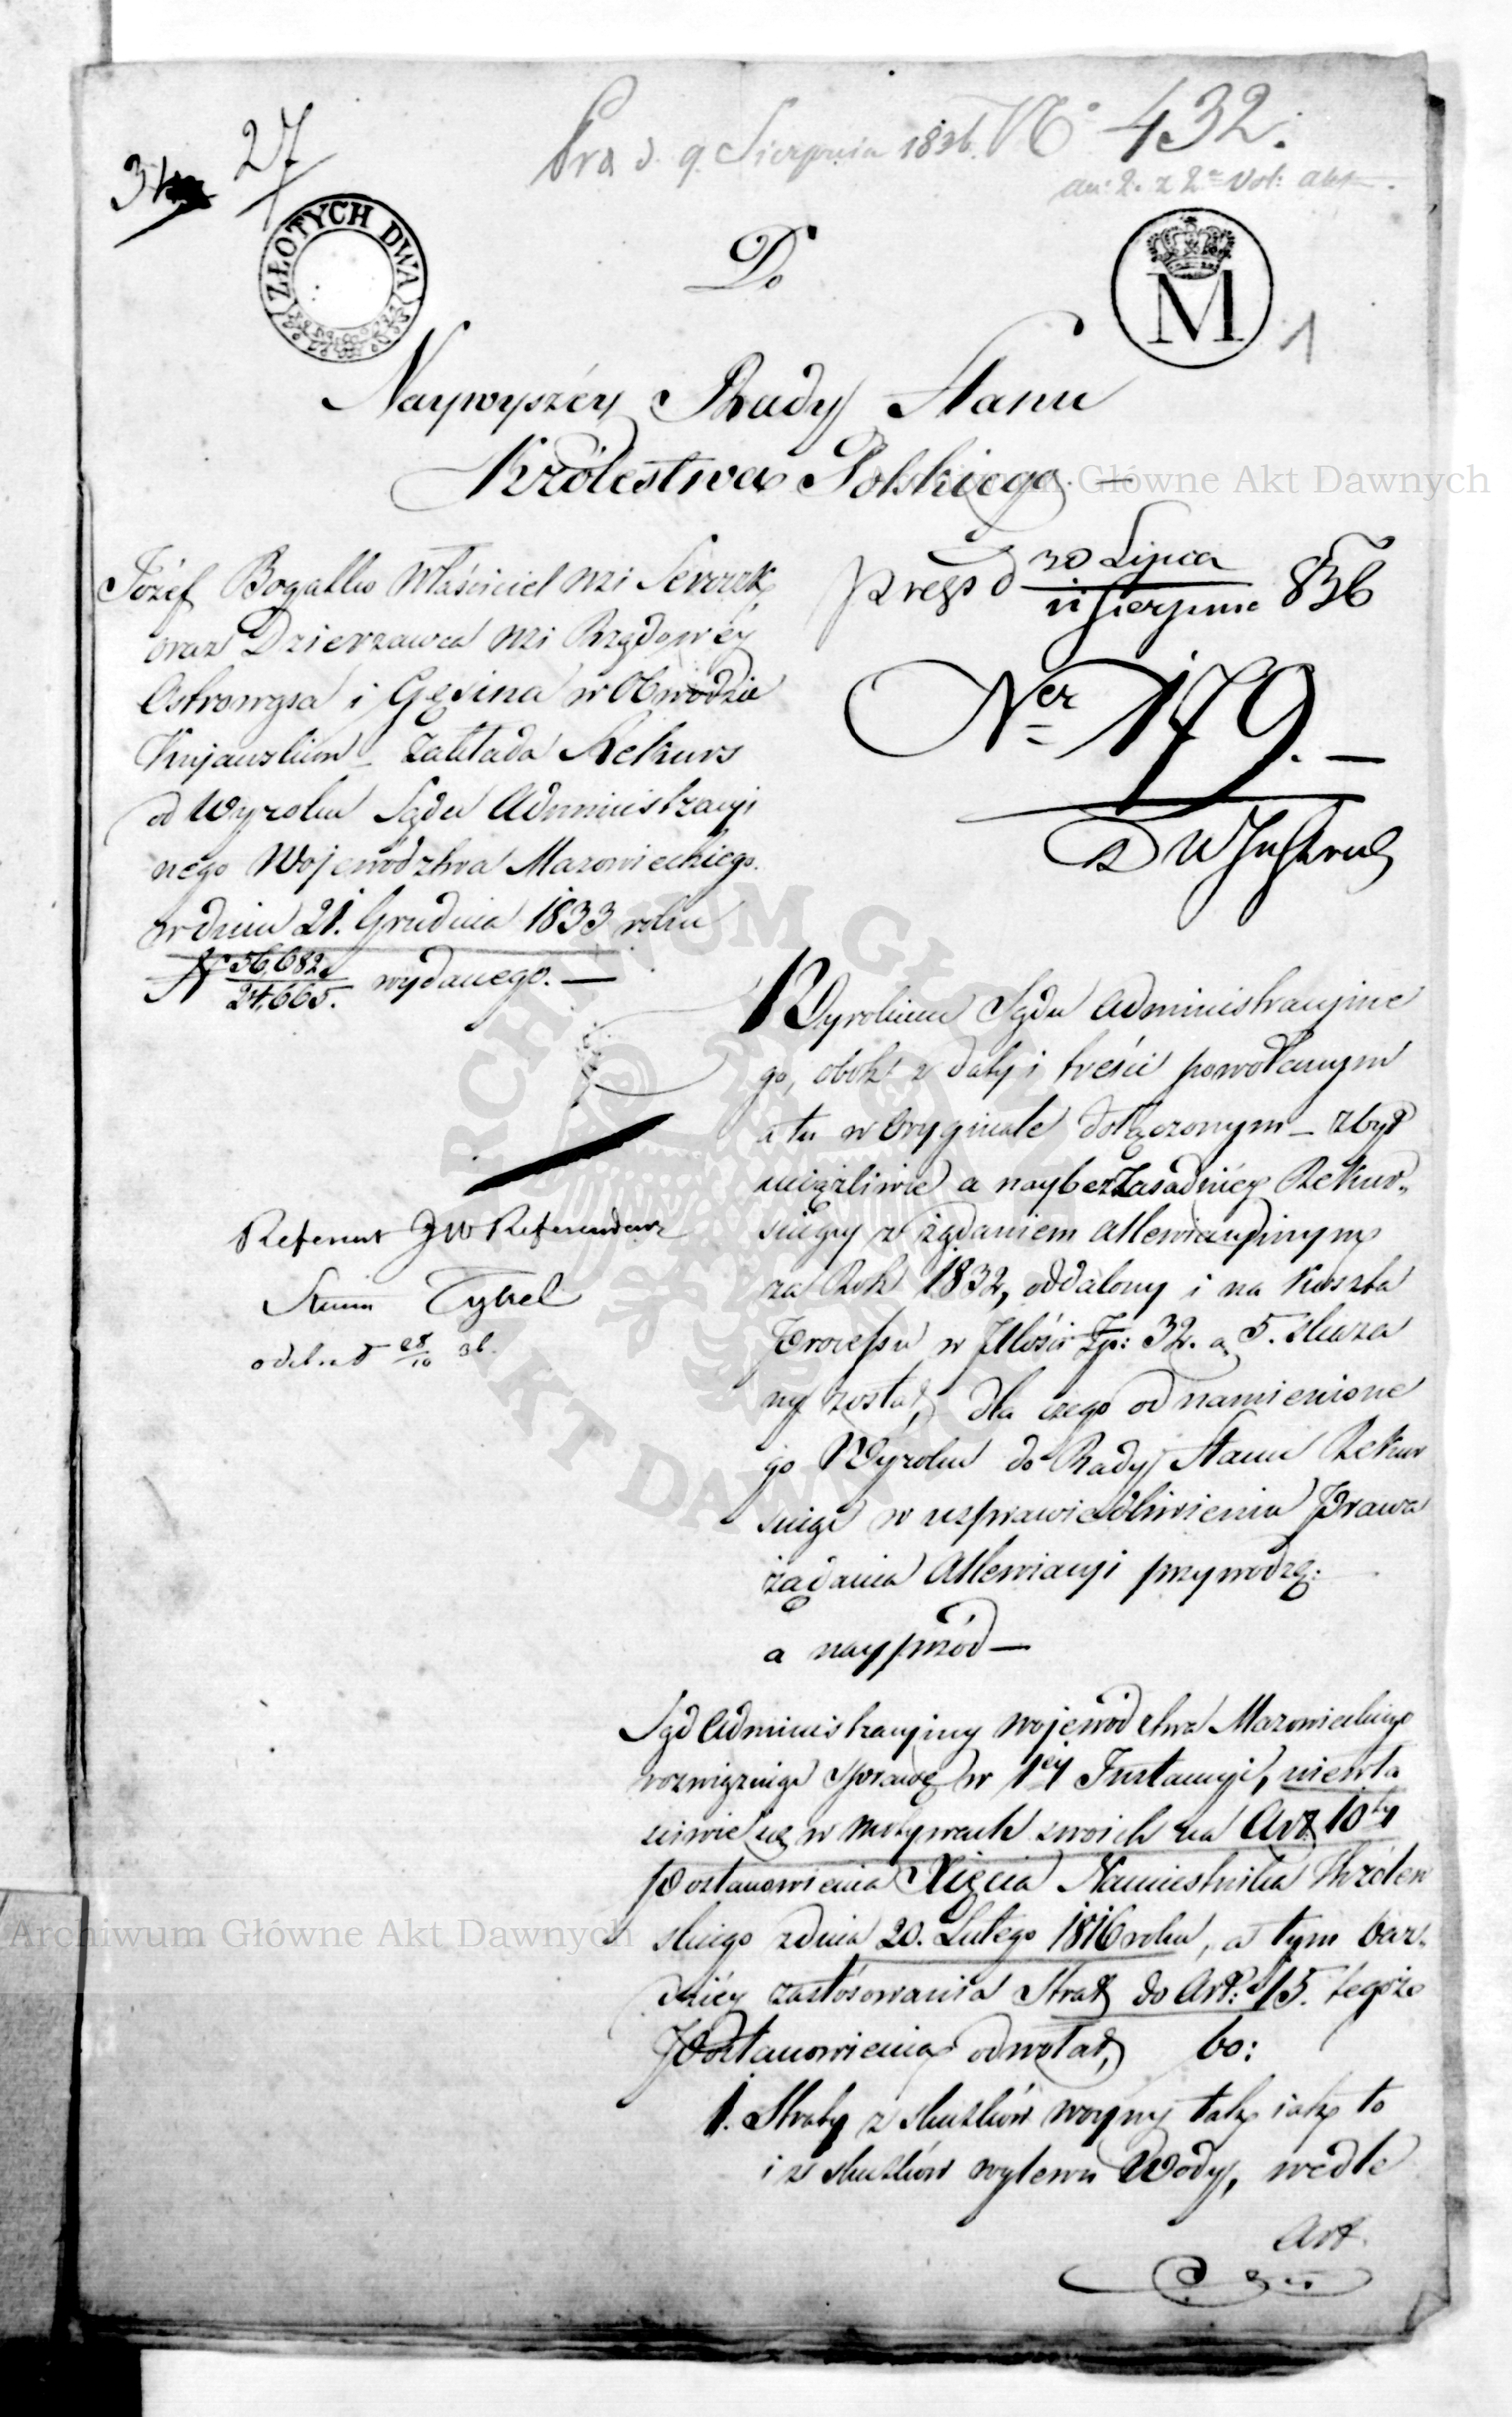 27
Pra d. 9 Sierpnia 1836. No 432.
ZŁOTYCH DWA
M
1
Do
Naywyższéy Rady Stanu
Królestwa Polskiego. —
Archiwum Główne Akt Dawnych
Józef Bogatko Właściciel wsi
oraz Dzierzawca wsi Rządowéy
i Gęsina w Obwodzie
Kujawskim zakłada Rekurs
od Wyroku Sądu Administracyi
nego Województwa Mazowieckiego.
w dniu 21. Grudnia 1833 roku
No 56,682/24,665. wydanego. —
30 Lipca
11 Sierpnia 836
Ner 179. —
Referent JW Referendarz
Stanu Tykel
28/10 36.
Wyrokiem Sądu Administracyjne
go, obok z daty i treści powołanym
a tu w Oryginale dołączonym – zbyt
uciążliwie a naybezzasadniéy Rekur„
suiący z żądaniem Allewiacyinym
za Rok 1832, oddalony i na Koszta
Processu w Ilości Zp: 32. g 5. skaza
ny został, dla czego od namienione
go Wyroku do Rady Stanu Rekur
suiąc w usprawiedliwieniu Prawa
żądania Allewiacyi przywodzę:
a nayprzód —
Sąd Administracyiny Województwa Mazowieckiego
rozwiązuiąc sprawę w 1éy Instancyi, niewła
ściwie się w motywach swoich na Art 10ty
Postanowienia Xięcia Namiestnika Królew
skiego z dnia 20. Lutego 1816 roku, a tym bar„
dziéy zastósowania Strat do Art: 15. tegoże
Postanowienia odwołał, bo:
1. Straty z skutków woyny tak iak to
i z skutków wylewu Wody, wedle
Art.
Archiwum Główne Akt Dawnych
ARCHIWUM GŁÓWNE AKT DAWNYCH